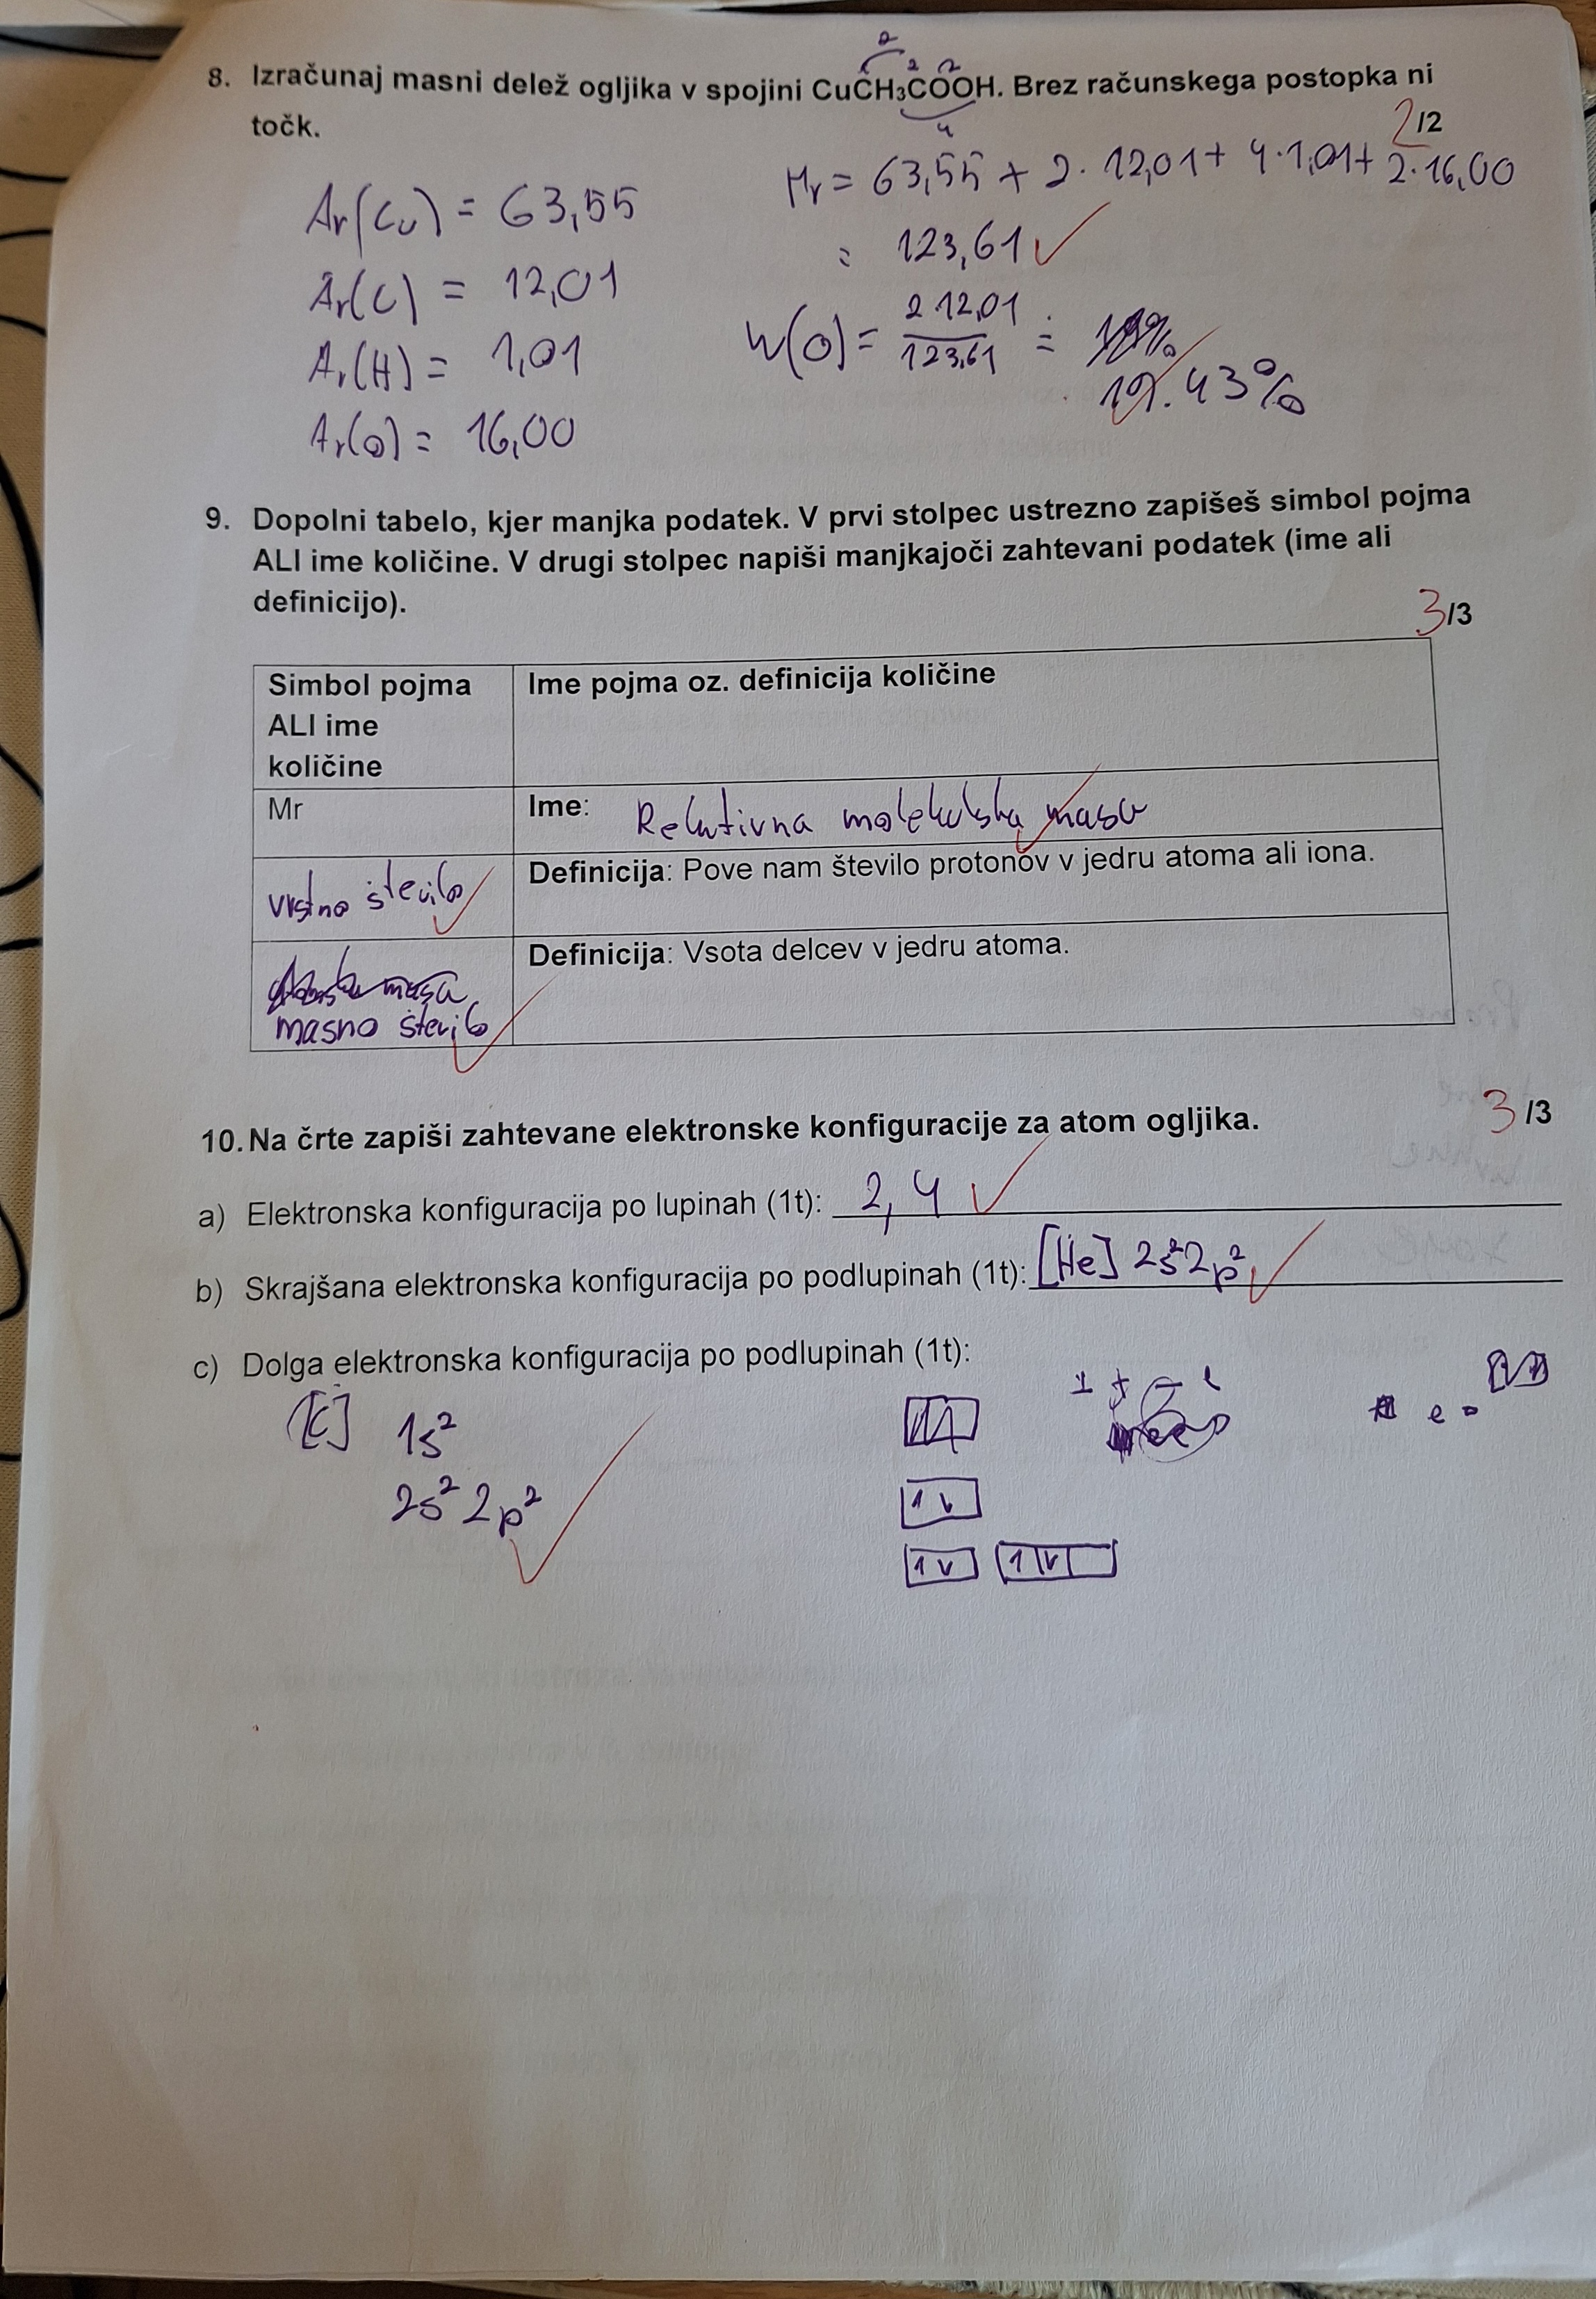 8. Izračunaj masni delež ogljika v spojini CuCH₃COOH. Brez računskega postopka ni
točk.
2/2
2
2 2
4
Ar(Cu) = 63,55
Ar(C) = 12,01
Ar(H) = 1,01
Ar(O) = 16,00
Mr = 63,55 + 2 · 12,01 + 4 · 1,01 + 2 · 16,00
= 123,61
w(O) = 2 12,01 / 123,61 =
19.43%
9. Dopolni tabelo, kjer manjka podatek. V prvi stolpec ustrezno zapišeš simbol pojma
ALI ime količine. V drugi stolpec napiši manjkajoči zahtevani podatek (ime ali
definicijo).
3/3
Simbol pojma
ALI ime
količine
Ime pojma oz. definicija količine
Mr
Ime: Relativna molekulska masa
vrstno število
Definicija: Pove nam število protonov v jedru atoma ali iona.
masno število
Definicija: Vsota delcev v jedru atoma.
10. Na črte zapiši zahtevane elektronske konfiguracije za atom ogljika.
3/3
a) Elektronska konfiguracija po lupinah (1t): 2, 4
b) Skrajšana elektronska konfiguracija po podlupinah (1t): [He] 2s²2p²
c) Dolga elektronska konfiguracija po podlupinah (1t):
[C] 1s²
2s² 2p²